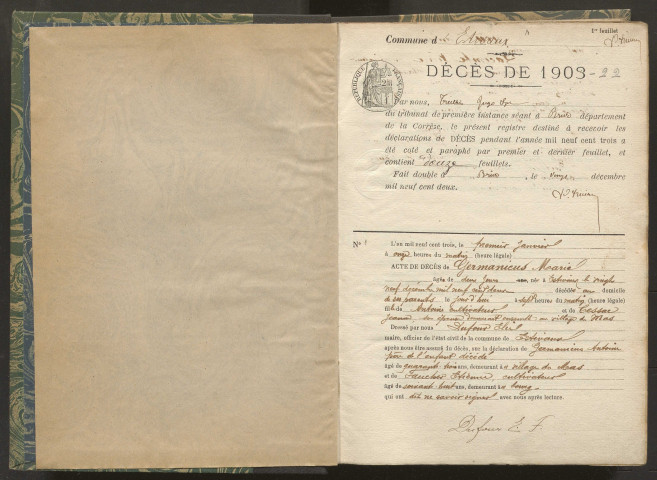 1er feuillet
Commune d'
DÉCÈS DE 1903-22
RÉPUBLIQUE FRANÇAISE
Par nous,
du tribunal de première instance séant à Brive département
de la Corrèze, le présent registre destiné à recevoir les
déclarations de DÉCÈS pendant l'année mil neuf cent trois a
été coté et paraphé par premier et dernier feuillet, et
contient douze feuillets.
Fait double à Brive, le onze décembre
mil neuf cent deux.
N° 1
L'an mil neuf cent trois, le premier Janvier
à onze heures du matin (heure légale)
ACTE DE DÉCÈS de Germanicus Maria
âgée de deux jours née à Estivaux le vingt
neuf décembre mil neuf cent deux décédée au domicile
de ses parents le jour d'hui à sept heures du matin (heure légale)
fille de Antoine cultivateur et de Tossar
Jeanne son épouse demeurant ensemble au village de Mas
Dressé par nous Dufour
maire, officier de l'état civil de la commune de Estivaux
après nous être assuré du décès, sur la déclaration de Germanicus Antoine
père de l'enfant décédé
âgé de quarante trois ans, demeurant à village du Mas
et de Faucher Etienne, cultivateur
âgé de soixante huit ans, demeurant à bourg
qui ont dit ne savoir signer avec nous après lecture.
Dufour E. F.